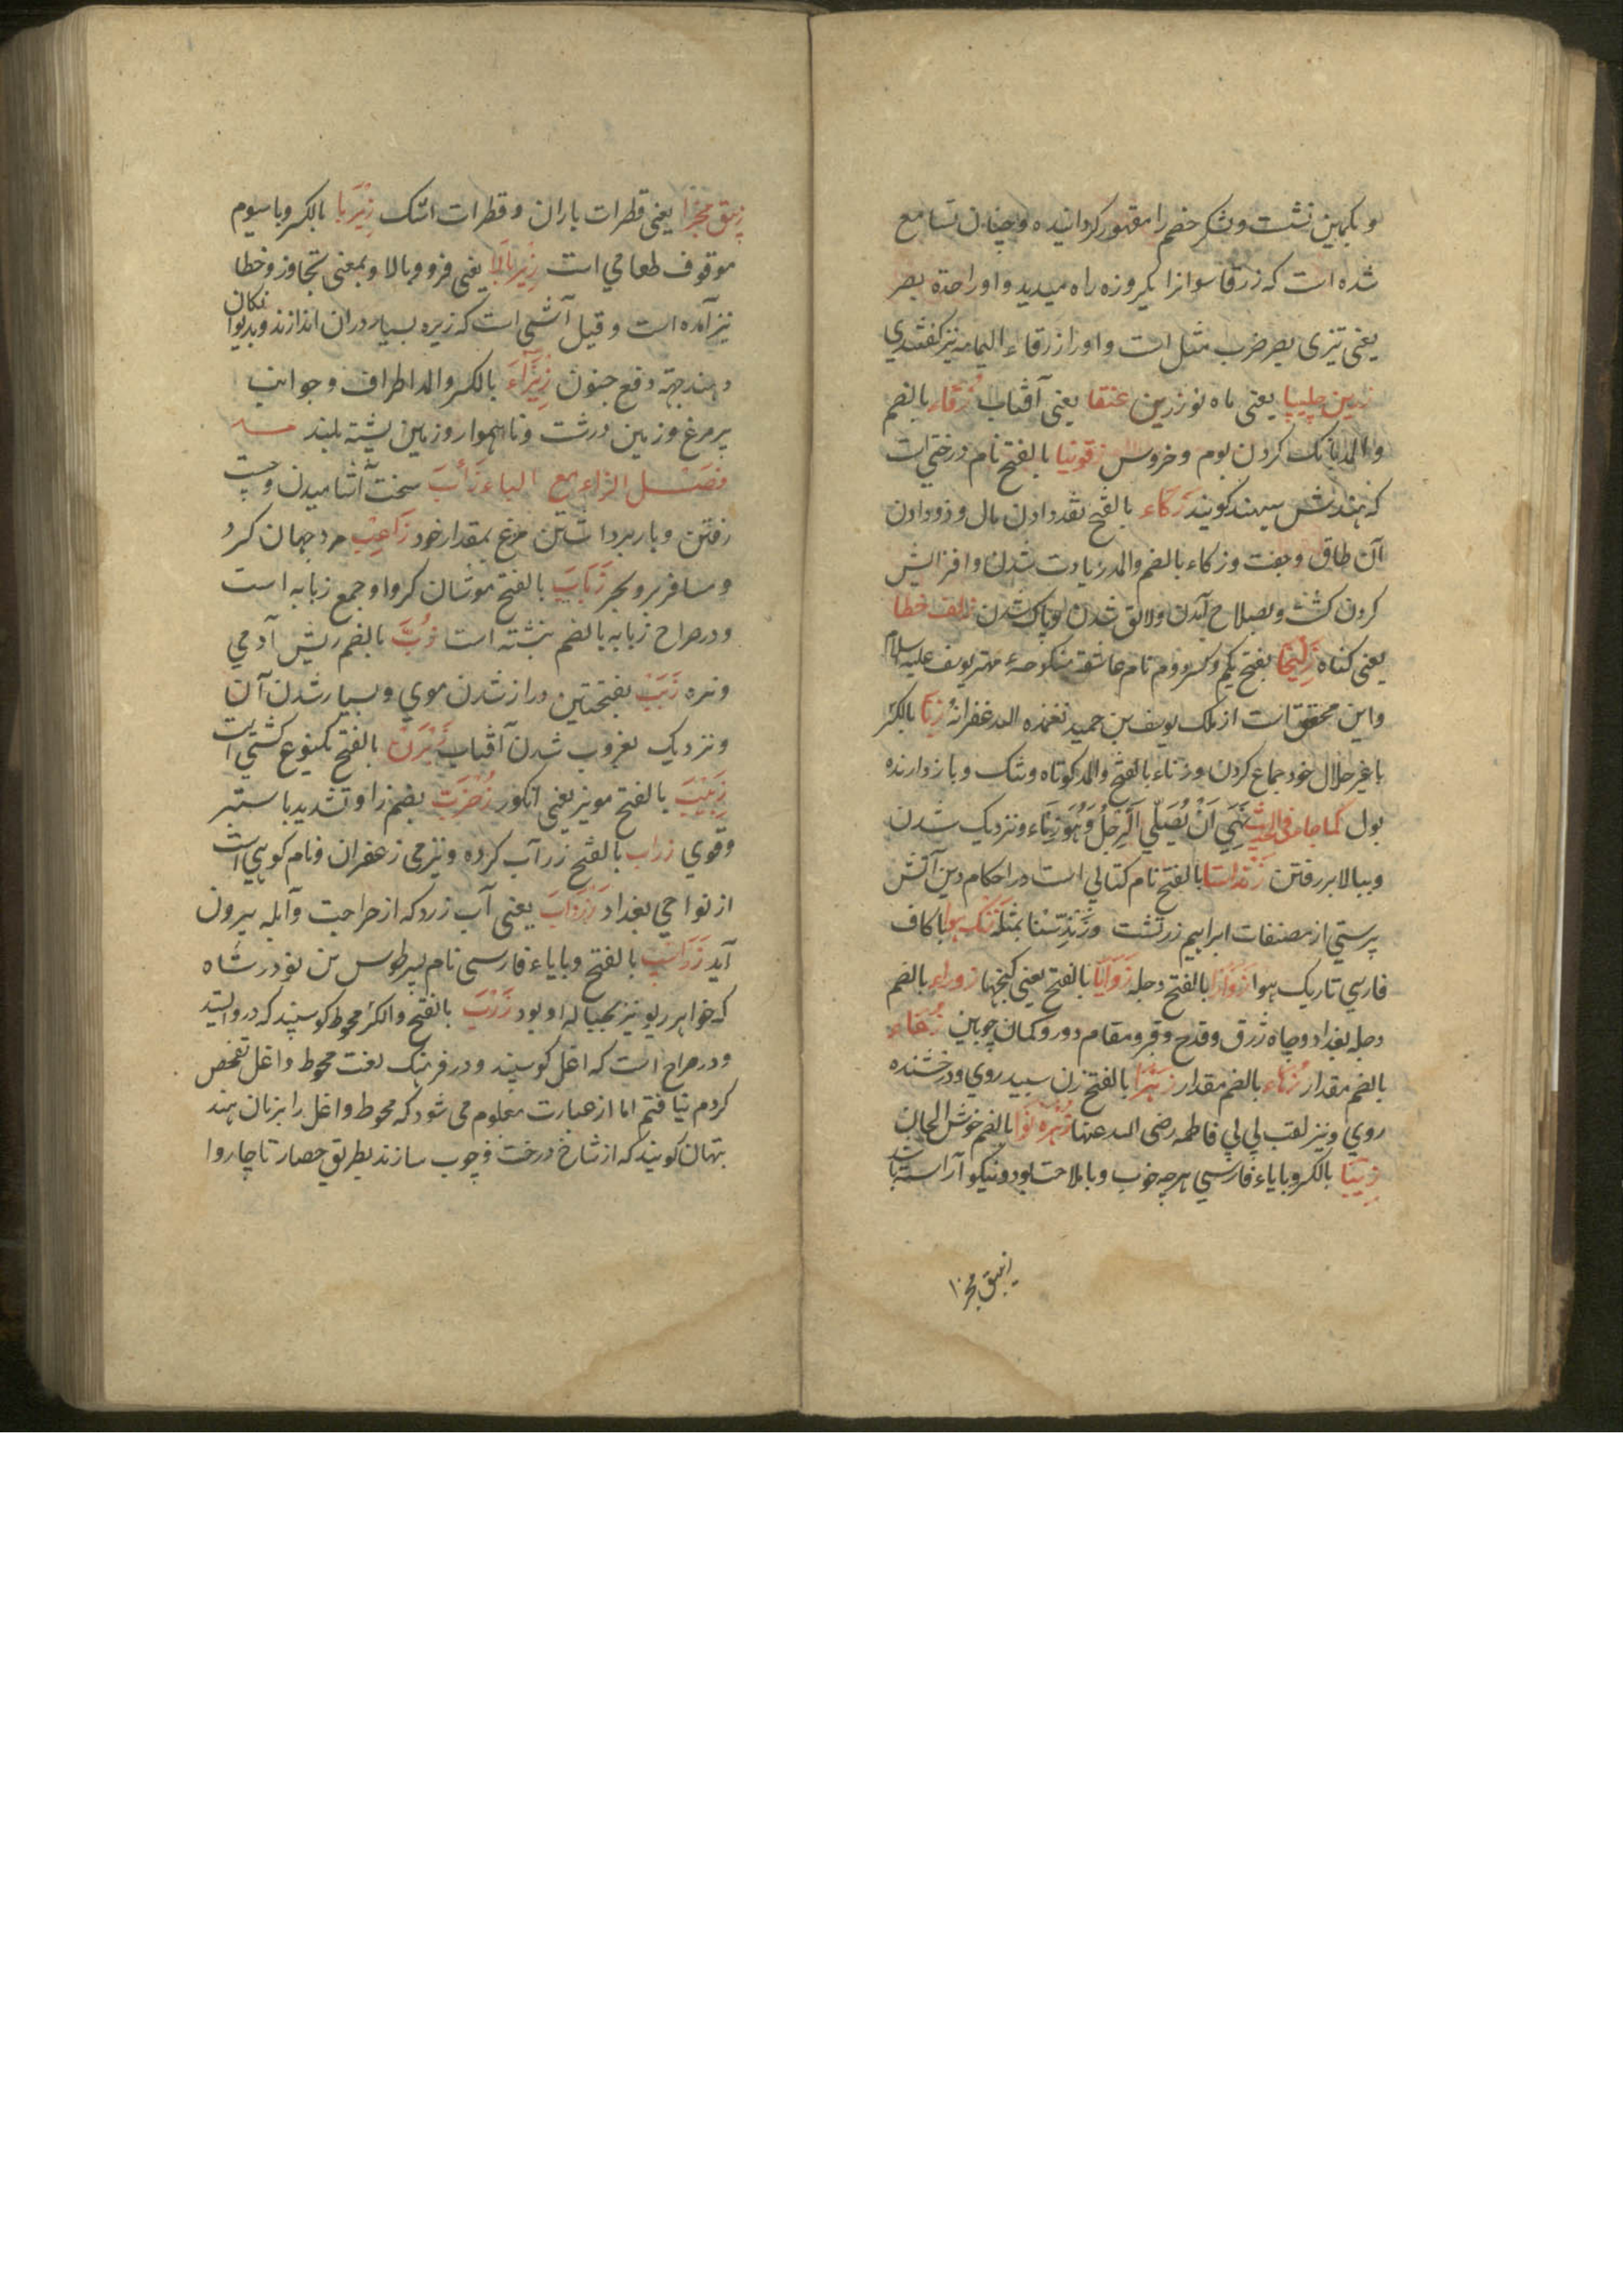 و بکمین نشست و لشکر خصم را مقهور کردانیده و چنان تسامع
شده است که زرقا سوانرا یکروزه راه میدید و اورا حدة بصر
یعنی تیزی بصر ضرب مثل است و اورا زرقاء الیمامه نیز گفتندی
زرین چلیپا یعنی ماه نو زرین عنقا یعنی آفتاب زقاء بالضم
والمد بانک کردن بوم و خروس زقونیا بالفتح نام درختی است
که هندش سیهند کویند زکاء بالفتح نقد دادن مال و زود دادن
آن طاق و جفت و زکاء بالضم والمد زیادت شدن و افزایش
کردن کشت و بصلاح آمدن ولائق شدن و پاک شدن زلف خطا
یعنی کناه زلیخا بفتح یکم وکسر دوم نام عاشقه منکوحهء مهتر یوسف علیه السلام
و این محقق است از ملک یوسف بن حمید تغمده الله غفرانه زنا بالکسر
با غیر حلال خود جماع کردن و زناء بالفتح والمد کوتاه و تنک و بازدارنده
بول کما جاء فی الحدیث نهی ان یصلی الرجل وهو زناء و نزدیک شدن
و ببالا بر رفتن زنداستا بالفتح نام کتابی است در احکام دین آتش
پرستی از مصنفات ابراهیم زرتشت و زندستنا بمثله زنک هوا با کاف
فارسی تاریک هوا زوارا بالفتح دجله زوایا بالفتح یعنی کنجها زوراء بالضم
دجله بغداد و چاه ژرق و قدح و قبر و مقام دور و کمان چوبین زخاء
بالضم مقدار زهاء بالضم مقدار زهرا بالفتح زن سپید روی و درخشنده
روی و نیز لقب بی بی فاطمه رضی الله عنها زهره نوا بالضم خوش الحان
زیبا بالکسر و بایاء فارسی هرچه خوب و با ملاحت بود و نیکو آراسته باشد
زیبق مجزا
زیبق مجزا یعنی قطرات باران و قطرات اشک زیربا بالکسر و با سیوم
موقوف طعامی است زیربالا یعنی فرود و بالا و بمعنی تجاوز و خطا
نیز آمده است و قیل آشی است که زیره بسیار دران اندازند و بدیوانکان
دهند جهة دفع جنون زیزاء بالکسر والمد اطراف و جوانب
پر مرغ و زمین درشت و ناهموار و زمین پشته بلند
فصل الزاء مع الباء زأب سخت آشامیدن و چست
رفتن و بار برداشتن مرغ بمقدار خود زاعب مرد جهان کرد
و مسافر بر و بحر زباب بالفتح موشان کر و او جمع زبابه است
و در صراح زبابه بالضم نبشته است زب بالضم ریش آدمی
و نره زبب بفتحتین دراز شدن موی و بسیار شدن آن
و نزدیک بغروب شدن آفتاب بالفتح یکنوع کشتی است
زبیب بالفتح مویز یعنی انکور زخزب بضم زا و تشدید با ستبر
و قوی زراب بالفتح زر آب کرده و نیز می زعفران و نام کوهی است
از نواحی بغداد زرداب یعنی آب زرد که از جراحت و آبله بیرون
آید زراسپ بالفتح و بایاء فارسی نام پسر طوس بن نوذر شاه
که خواهر ریونیز بحباله او بود زرب بالفتح والکسر محوط کوسپند که درو باشد
و در صراح است که اغل کوسپند و در فرهنک لغت محوط و اغل تفحص
کردم نیافتم اما از عبارت معلوم می شود که محوط و اغل را بزبان هند
بتهان کویند که از شاخ درخت و چوب سازند بطریق حصار تا چاروا